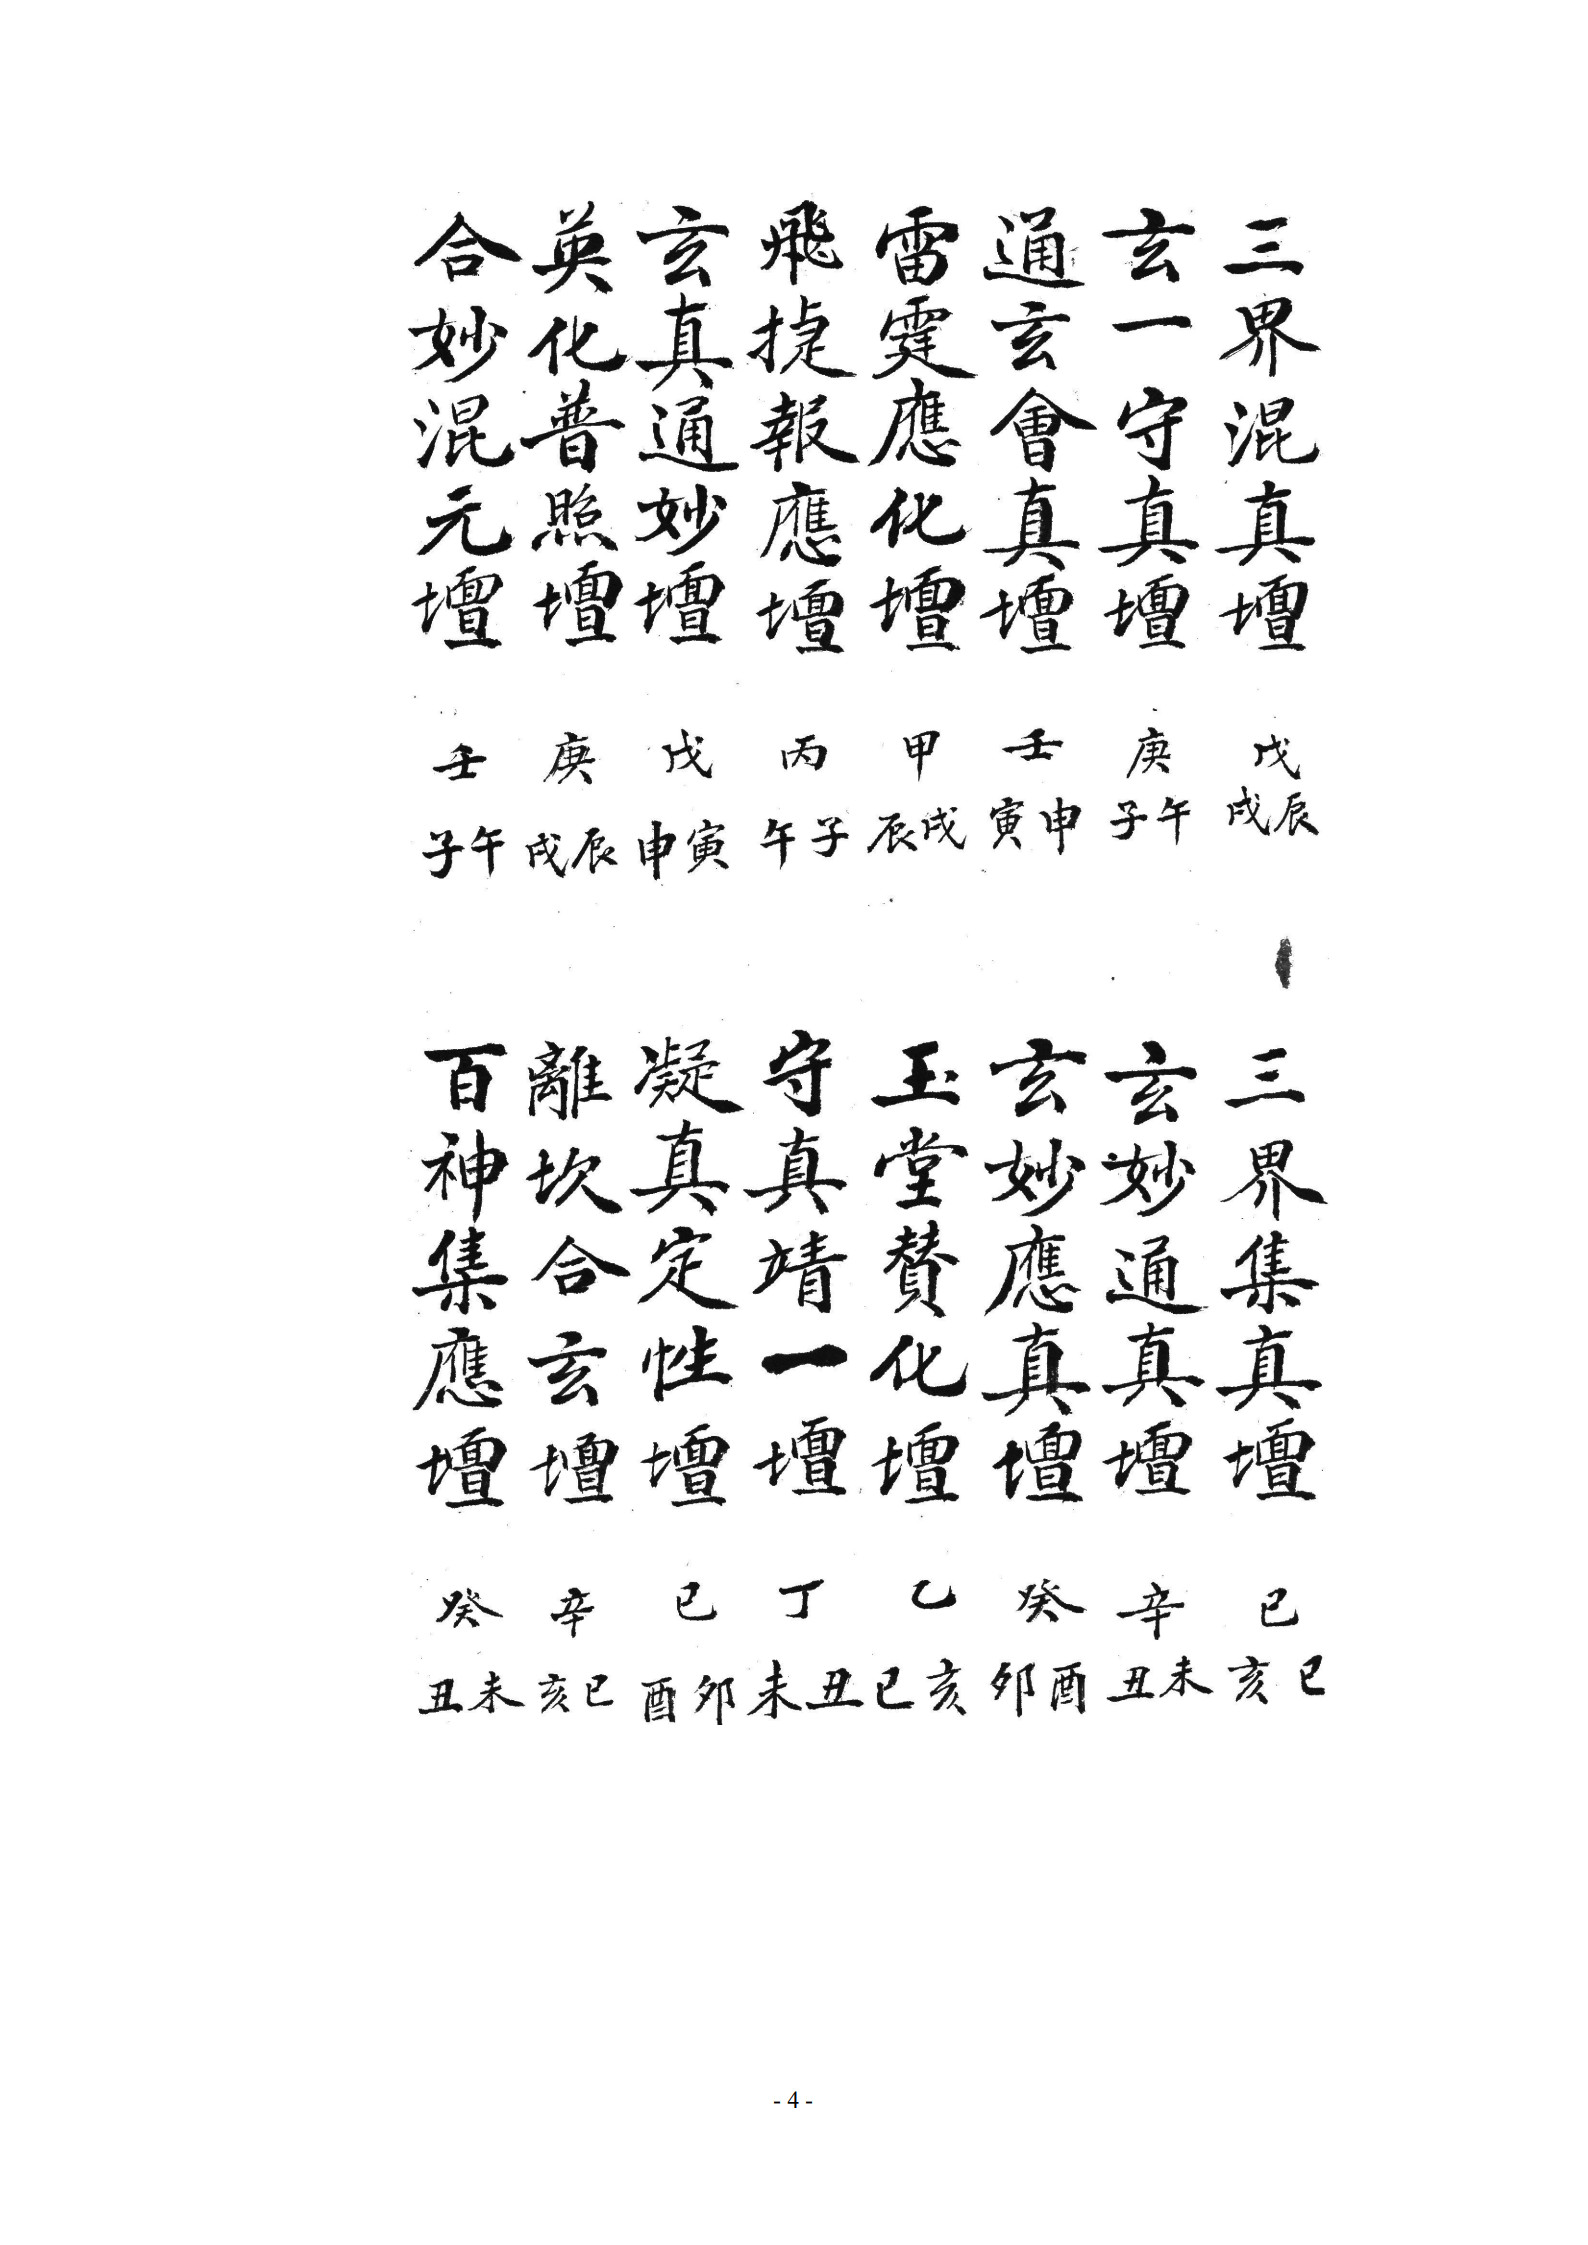 三界混真壇 戊 辰戌
玄一守真壇 庚 午子
通玄會真壇 壬 申寅
雷霆應化壇 甲 戌辰
飛捷報應壇 丙 子午
玄真通妙壇 戊 寅申
英化普照壇 庚 辰戌
合妙混元壇 壬 午子
三界集真壇 己 巳亥
玄妙通真壇 辛 未丑
玄妙應真壇 癸 酉卯
玉堂贊化壇 乙 亥巳
守真靖一壇 丁 丑未
凝真定性壇 己 卯酉
離坎合玄壇 辛 巳亥
百神集應壇 癸 未丑
- 4 -